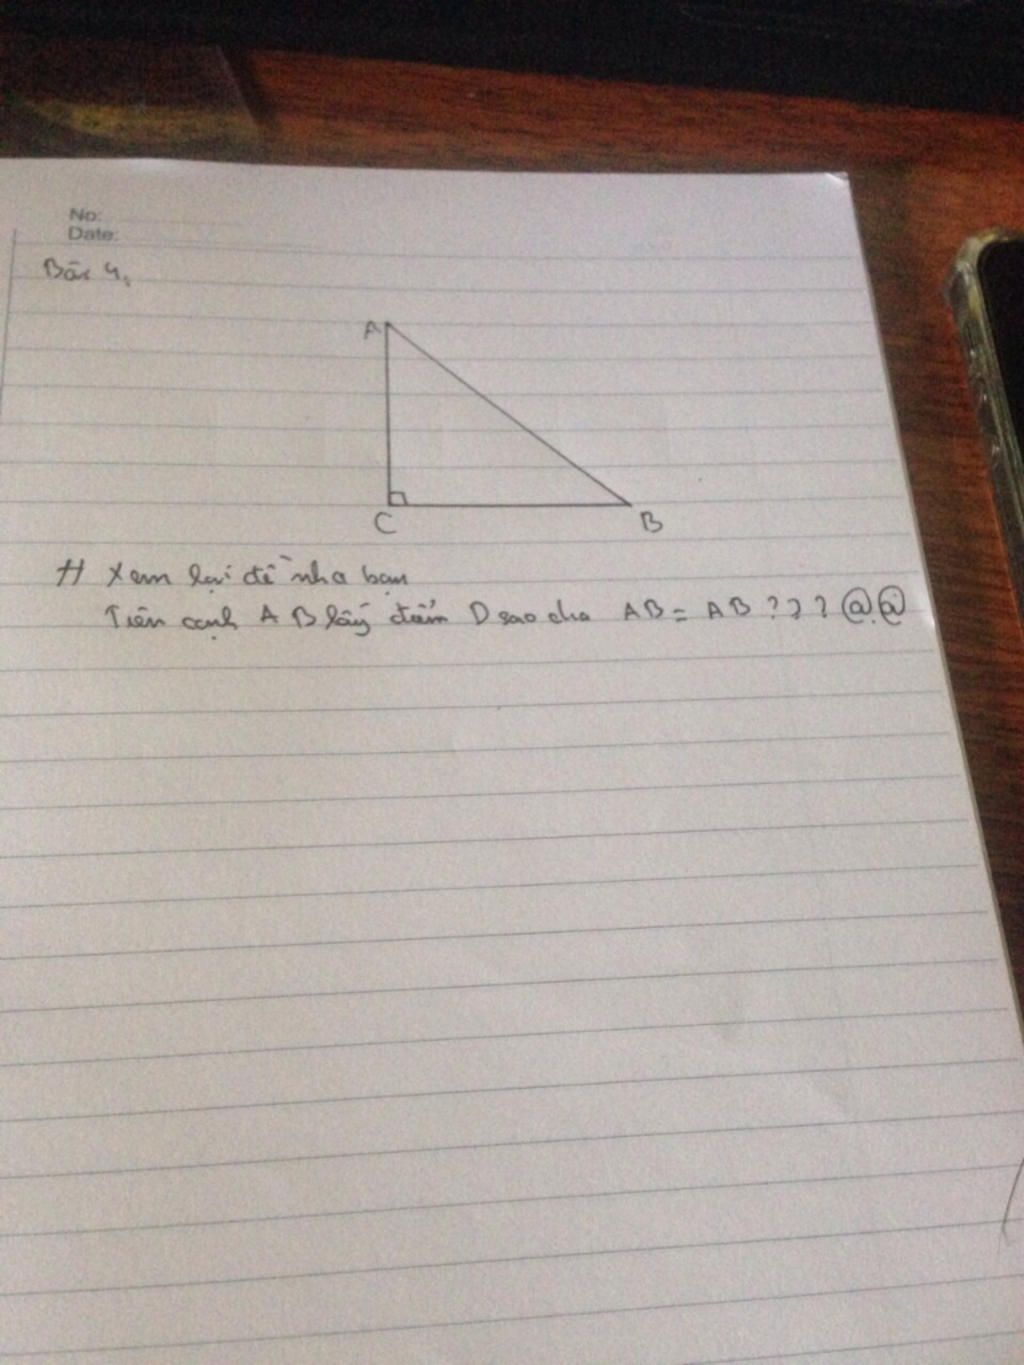 No:
Date:
Bài 4,
A
C
B
H Xem lại đề nha bạn
Trên cạnh AB lấy điểm D sao cho AB = AB ??? @@